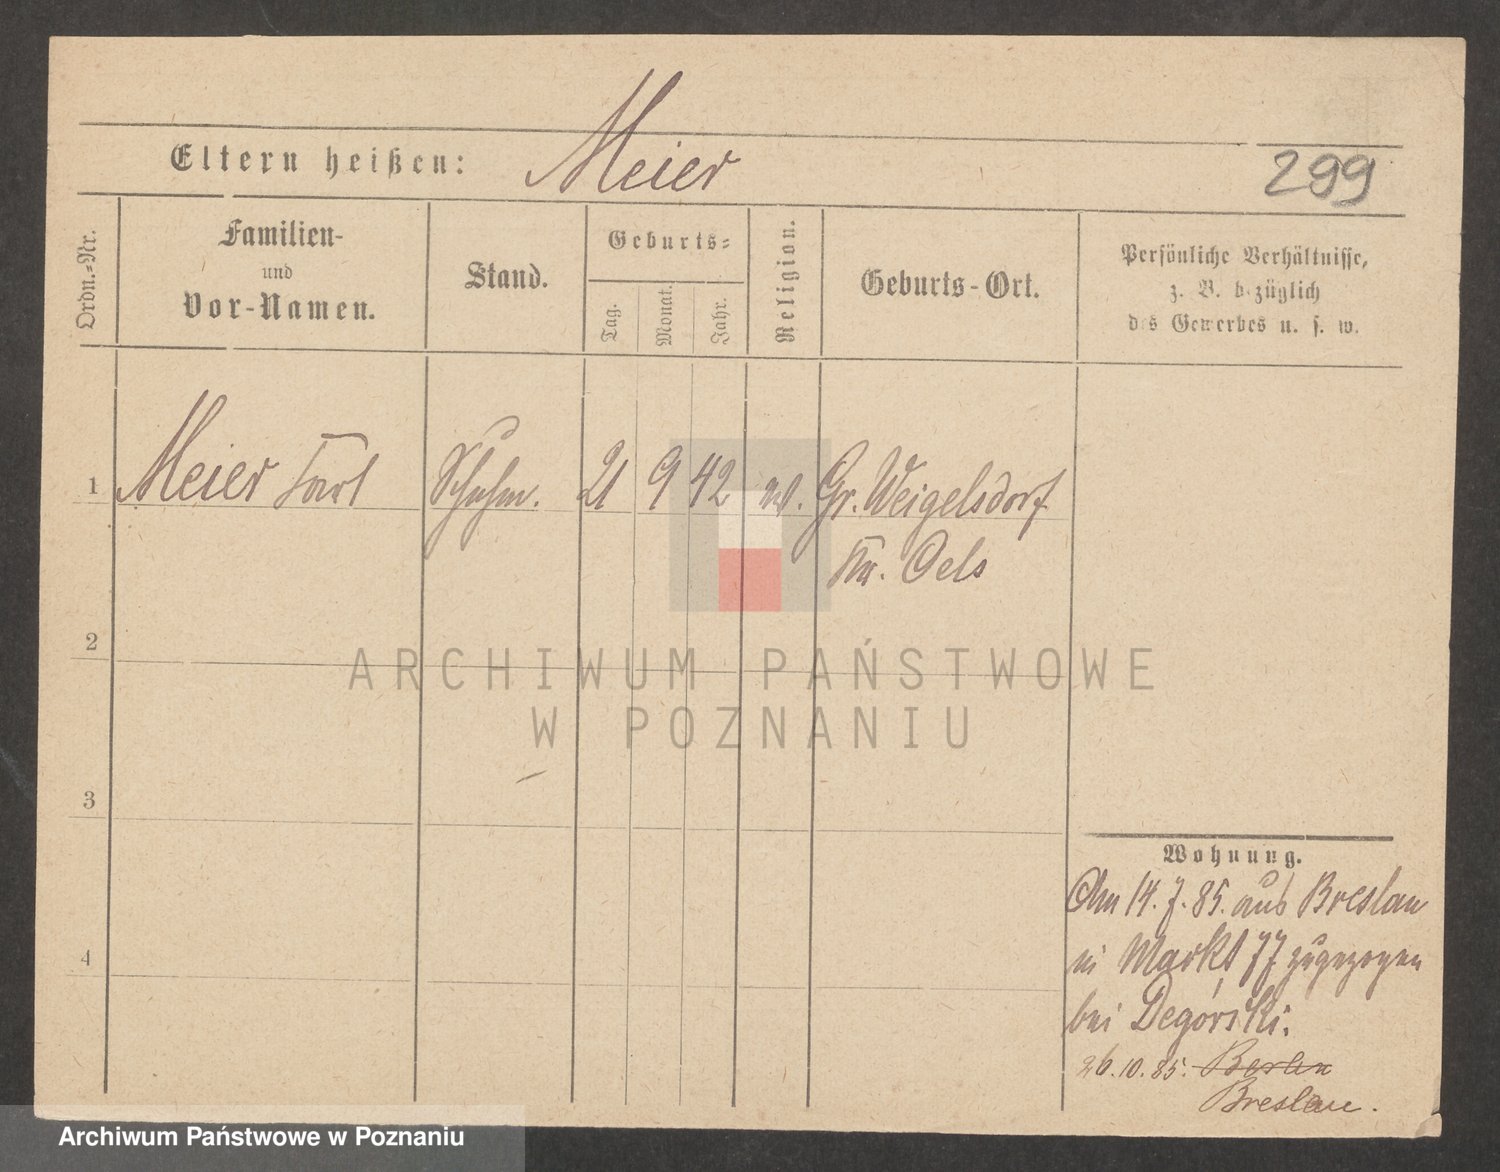 Eltern heißen: Meier
299
Ordn.=Nr.
Familien-
und
Vor-Namen.
Stand.
Geburts=
Tag.
Monat.
Jahr.
Religion.
Geburts-Ort.
Persönliche Verhältnisse,
z. B. bezüglich
des Gewerbes u. s. w.
1 Meier Karl Schuhm. 21 9 42 ev. Gr. Weigelsdorf
Kr. Oels
2
3
4
ARCHIWUM PAŃSTWOWE
W POZNANIU
Wohnung.
Am 14.7.85. aus Breslau
in Markt 77 zugezogen
bei Degórski.
26.10.85. Berlin
Breslau.
Archiwum Państwowe w Poznaniu